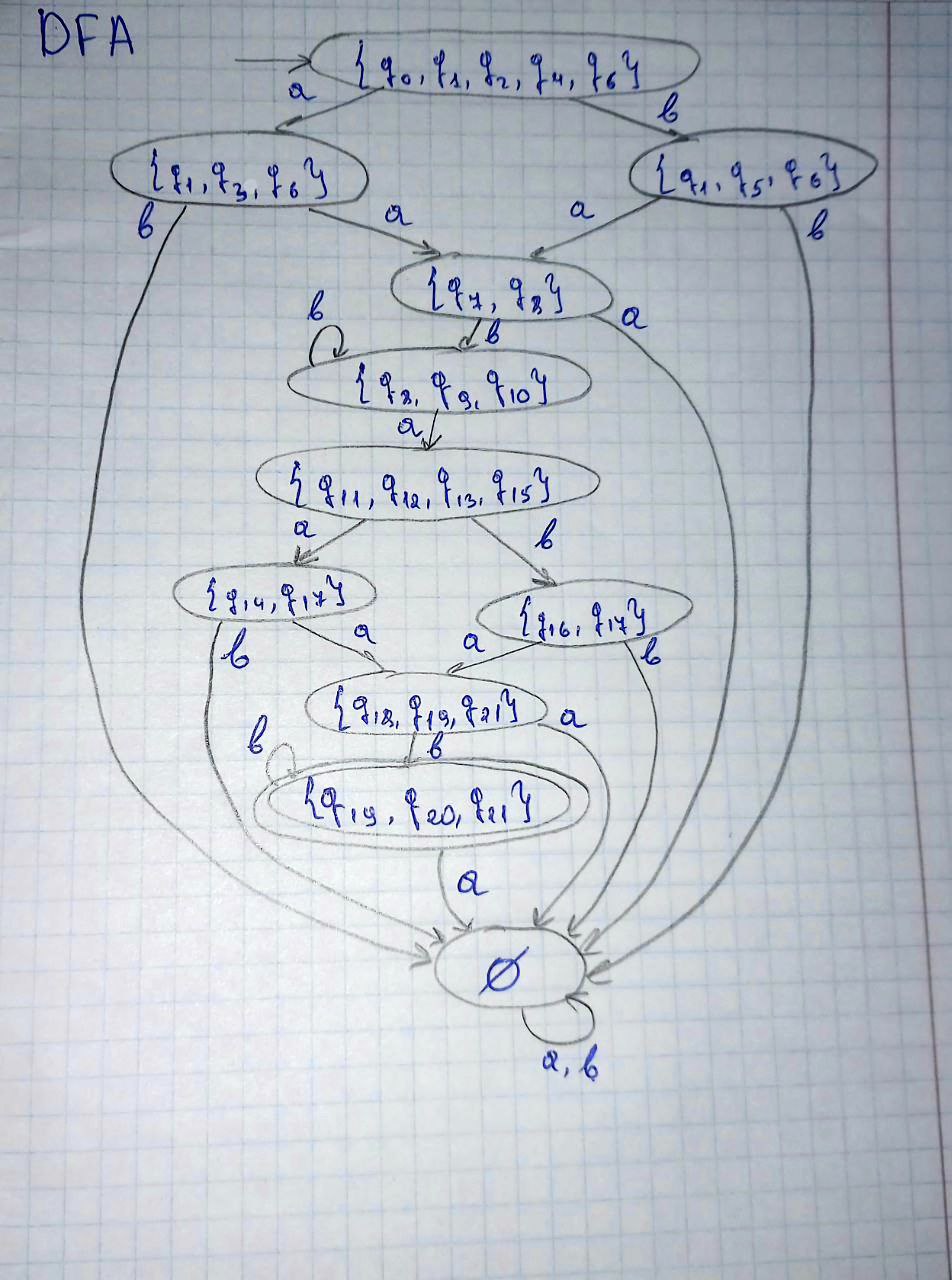 DFA
{q₀, q₁, q₂, q₄, q₆}
a b
{q₁, q₃, q₆} {q₁, q₅, q₆}
b a a b
{q₇, q₈}
b b a
{q₈, q₉, q₁₀}
a
{q₁₁, q₁₂, q₁₃, q₁₅}
a b
{q₁₄, q₁₇} {q₁₆, q₁₇}
b a a b
{q₁₈, q₁₉, q₂₁} a
b b
{q₁₉, q₂₀, q₂₁}
a
∅
a, b